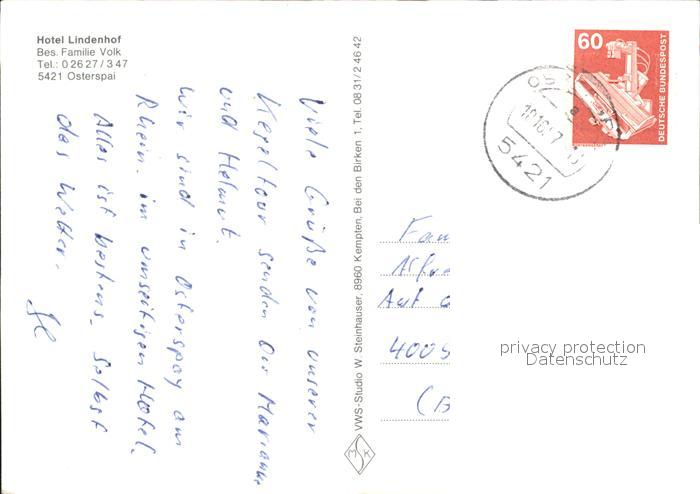 Hotel Lindenhof
Bes. Familie Volk
Tel.: 0 26 27 / 3 47
5421 Osterspai
Viele Grüße von unserer
Kegeltour senden Dir Marianne
und Helmut.
Wir sind in Osterspay am
Rhein. im umseitigen Hotel.
Alles ist bestens. Selbst
das Wetter.
VWS-Studio W. Steinhauser, 8960 Kempten, Bei den Birken 1, Tel. 08 31/2 46 42
MSK
60
DEUTSCHE BUNDESPOST
5421
Fam
Alfre
Amt
4005
privacy protection
Datenschutz